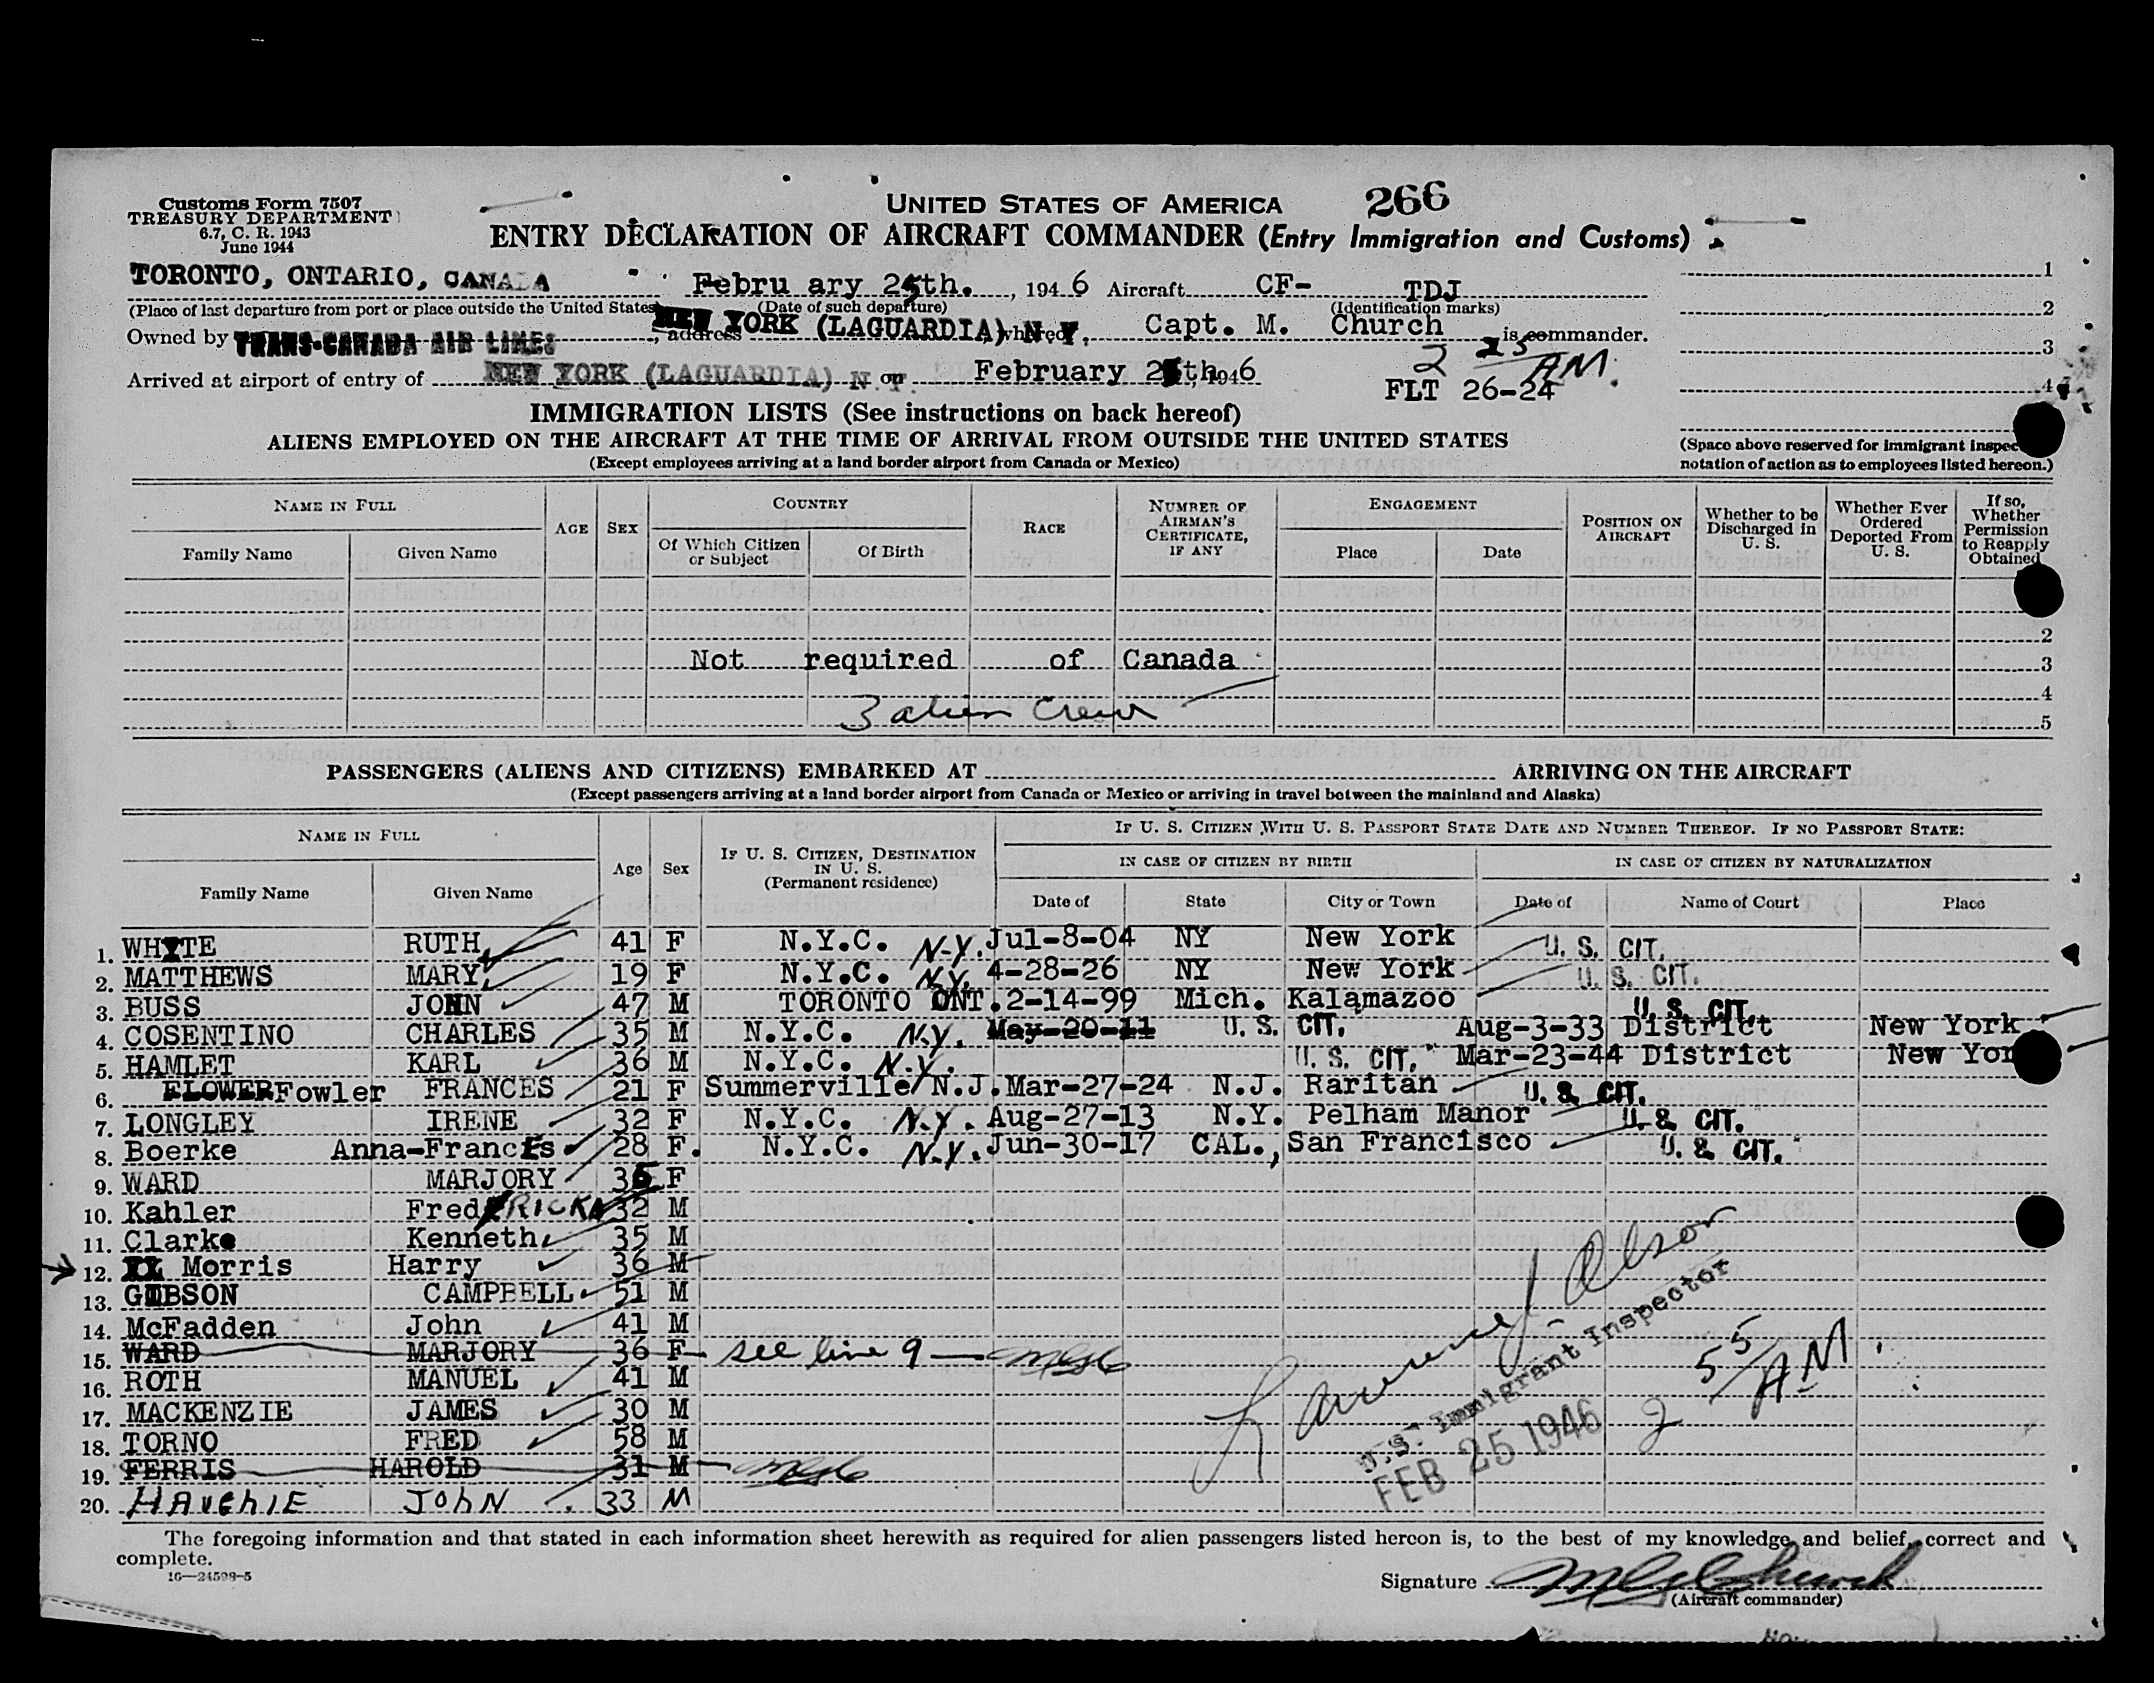 Customs Form 7507
TREASURY DEPARTMENT
6.7, C. R. 1943
June 1944
UNITED STATES OF AMERICA 266
ENTRY DECLARATION OF AIRCRAFT COMMANDER (Entry Immigration and Customs)
TORONTO, ONTARIO, CANADA Febru ary 25th., 1946 Aircraft CF- TDJ
(Place of last departure from port or place outside the United States) (Date of such departure) (Identification marks)
Owned by TRANS-CANADA AIR LINES, address NEW YORK (LAGUARDIA) N Y, whereof Capt. M. Church is commander.
Arrived at airport of entry of NEW YORK (LAGUARDIA) N.Y. on February 25th, 1946
2 25 AM.
FLT 26-24
1
2
3
4
(Space above reserved for immigrant inspec
notation of action as to employees listed hereon.)
IMMIGRATION LISTS (See instructions on back hereof)
ALIENS EMPLOYED ON THE AIRCRAFT AT THE TIME OF ARRIVAL FROM OUTSIDE THE UNITED STATES
(Except employees arriving at a land border airport from Canada or Mexico)
NAME IN FULL AGE SEX COUNTRY RACE NUMBER OF AIRMAN'S CERTIFICATE, IF ANY ENGAGEMENT POSITION ON AIRCRAFT Whether to be Discharged in U. S. Whether Ever Ordered Deported From U. S. If so, Whether Permission to Reapply Obtained
Family Name Given Name Of Which Citizen or Subject Of Birth Place Date
2
Not required of Canada 3
4
3 alien Crew 5
PASSENGERS (ALIENS AND CITIZENS) EMBARKED AT ARRIVING ON THE AIRCRAFT
(Except passengers arriving at a land border airport from Canada or Mexico or arriving in travel between the mainland and Alaska)
NAME IN FULL Age Sex IF U. S. CITIZEN, DESTINATION IN U. S. (Permanent residence) IF U. S. CITIZEN WITH U. S. PASSPORT STATE DATE AND NUMBER THEREOF. IF NO PASSPORT STATE:
IN CASE OF CITIZEN BY BIRTH IN CASE OF CITIZEN BY NATURALIZATION
Family Name Given Name Date of State City or Town Date of Name of Court Place
1. WHYTE RUTH 41 F N.Y.C. N.Y. Jul-8-04 NY New York U. S. CIT.
2. MATTHEWS MARY 19 F N.Y.C. N.Y. 4-28-26 NY New York U. S. CIT.
3. BUSS JOHN 47 M TORONTO ONT. 2-14-99 Mich. Kalamazoo U. S. CIT.
4. COSENTINO CHARLES 35 M N.Y.C. N.Y. May-20-11 U. S. CIT. Aug-3-33 District New York
5. HAMLET KARL 36 M N.Y.C. N.Y. U. S. CIT. Mar-23-44 District New Yor
6. FLOWER Fowler FRANCES 21 F Summerville N.J. Mar-27-24 N.J. Raritan U. S. CIT.
7. LONGLEY IRENE 32 F N.Y.C. N.Y. Aug-27-13 N.Y. Pelham Manor U. S. CIT.
8. Boerke Anna-FrancEs 28 F. N.Y.C. N.Y. Jun-30-17 CAL., San Francisco U. S. CIT.
9. WARD MARJORY 36 F
10. Kahler FredERICK 32 M
11. Clarke Kenneth 35 M
12. Morris Harry 36 M
13. GIBSON CAMPBELL 51 M
14. McFadden John 41 M
15. WARD MARJORY 36 F see line 9
16. ROTH MANUEL 41 M
17. MACKENZIE JAMES 30 M
18. TORNO FRED 58 M
19. FERRIS HAROLD 31 M
20. HAUGHIE JOHN 33 M
U. S. Immigrant Inspector
FEB 25 1946
2 55 AM
The foregoing information and that stated in each information sheet herewith as required for alien passengers listed hereon is, to the best of my knowledge and belief, correct and
complete.
16—24598-5
Signature
(Aircraft commander)